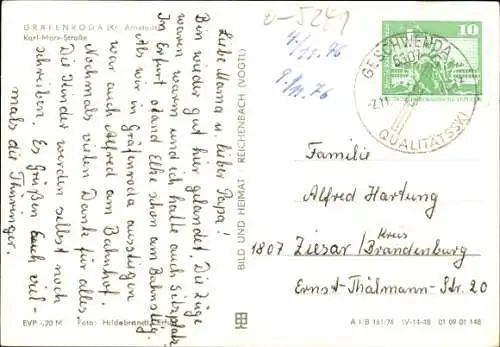 GRÄFENRODA (Kr. Arnstadt)
Karl-Marx-Straße
Liebe Mama u. lieber Papa!
Bin wieder gut hier gelandet. Die Züge
waren warm und ich hatte auch Sitzplatz
Als wir in Gräfenroda ausstiegen
Im Erfurt stand Elke schon am Bahnsteig,
war auch Alfred am Bahnhof.
Nochmals vielen Dank für alles.
Die Kinder werden selbst noch
schreiben. Es grüßen Euch viel-
mals die Thüringer.
EVP -,20 M Foto: Hildebrandt, Erfurt
BILD UND HEIMAT REICHENBACH (VOGTL)
v-5241
4/11.76
9.11.76
10
GESCHWENDA
6307
-2.11
QUALITÄTSSKI
Familie
Alfred Hartung
1807 Ziesar / Kreis Brandenburg
Ernst-Thälmann-Str. 20
A 1/B 161/76 IV-14-48 01 09 01 148